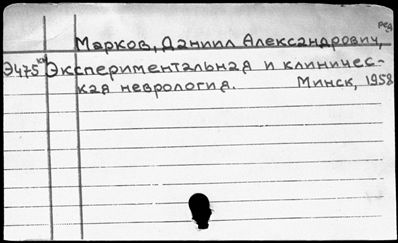 ред
Марков, Даниил Александрович,
Э475 кн Экспериментальная и клиничес-
кая неврология. Минск, 1958